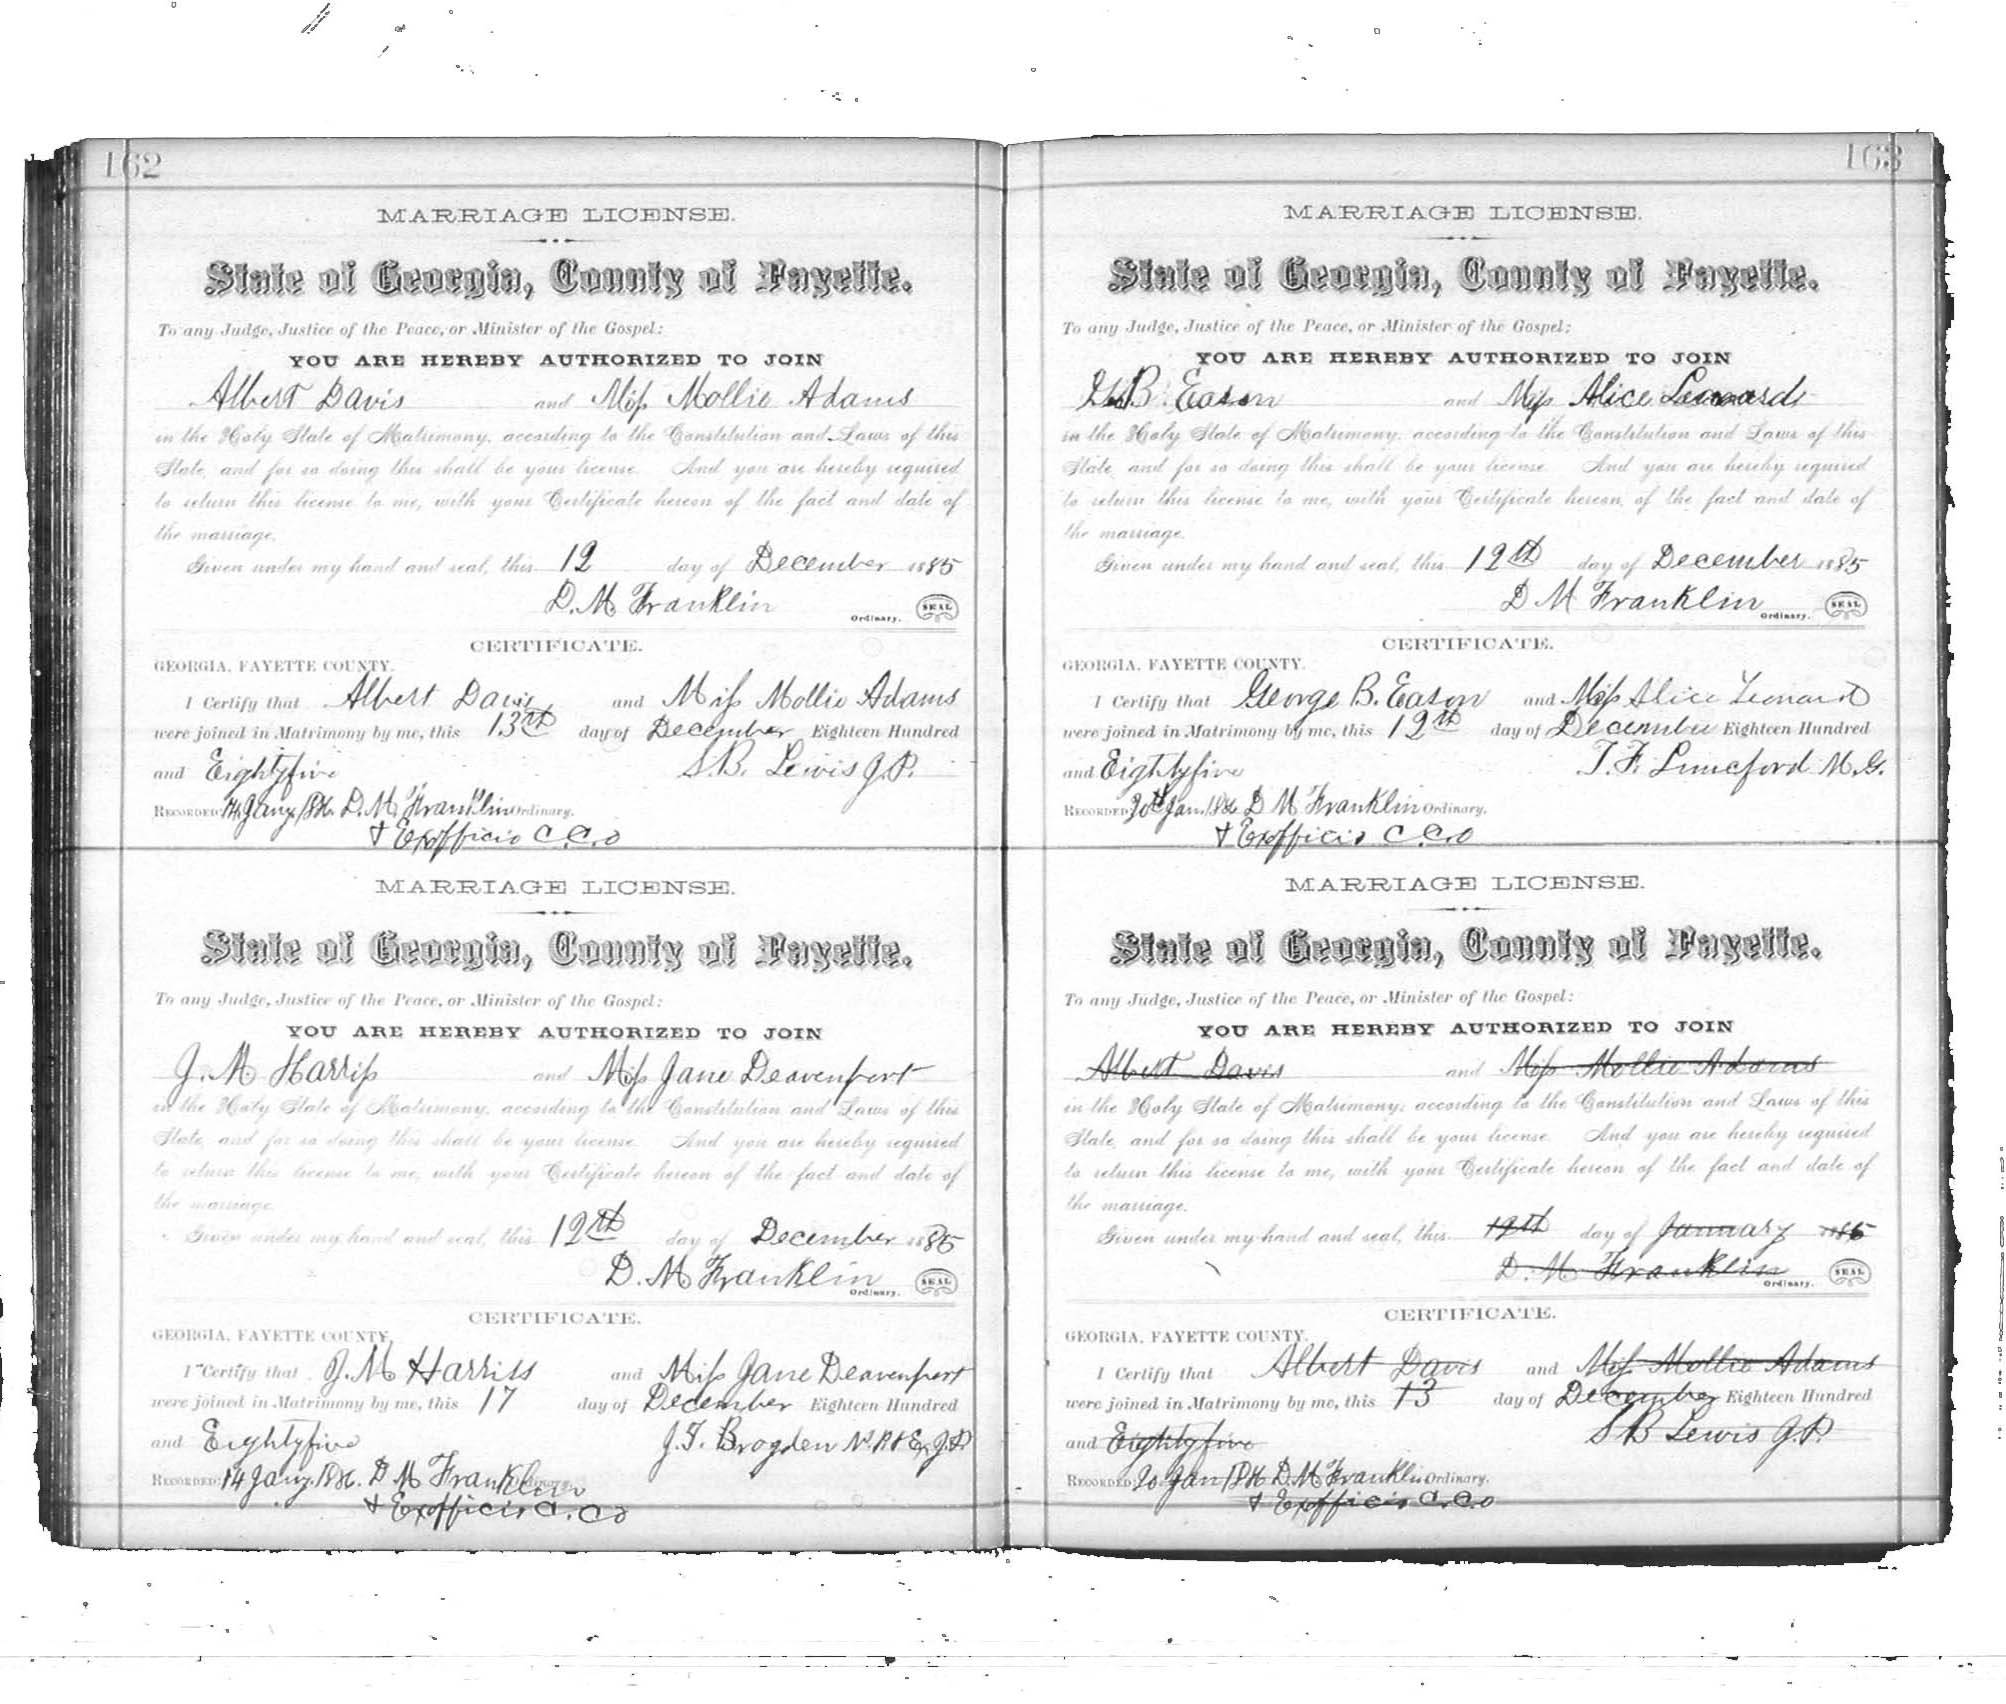 162
MARRIAGE LICENSE.
State of Georgia, County of Fayette.
To any Judge, Justice of the Peace, or Minister of the Gospel:
YOU ARE HEREBY AUTHORIZED TO JOIN
Albert Davis and Miss Mollie Adams
in the Holy State of Matrimony, according to the Constitution and Laws of this
State, and for so doing this shall be your license. And you are hereby required
to return this license to me, with your Certificate hereon of the fact and date of
the marriage.
Given under my hand and seal, this 12 day of December 1885
D. M Franklin
Ordinary. SEAL
CERTIFICATE.
GEORGIA, FAYETTE COUNTY.
I Certify that Albert Davis and Miss Mollie Adams
were joined in Matrimony by me, this 13th day of December Eighteen Hundred
and Eightyfive S. B. Lewis J. P.
RECORDED 14 Jany. 1886. D. M. Franklin Ordinary.
+ Exofficio C. C. O
MARRIAGE LICENSE.
State of Georgia, County of Fayette.
To any Judge, Justice of the Peace, or Minister of the Gospel:
YOU ARE HEREBY AUTHORIZED TO JOIN
J. M Harriss and Miss Jane Deavenport
in the Holy State of Matrimony, according to the Constitution and Laws of this
State, and for so doing this shall be your license. And you are hereby required
to return this license to me, with your Certificate hereon of the fact and date of
the marriage.
Given under my hand and seal, this 12th day of December 1885
D. M Franklin
Ordinary. SEAL
CERTIFICATE.
GEORGIA, FAYETTE COUNTY.
I Certify that J. M Harriss and Miss Jane Deavenport
were joined in Matrimony by me, this 17 day of December Eighteen Hundred
and Eightyfive J. F. Brogden N. P. & Ex J. P
RECORDED 14 Jany. 1886. D M Franklin Ordinary.
+ Exofficio C. Co
163
MARRIAGE LICENSE.
State of Georgia, County of Fayette.
To any Judge, Justice of the Peace, or Minister of the Gospel:
YOU ARE HEREBY AUTHORIZED TO JOIN
B. Eason and Miss Alice Leonard
in the Holy State of Matrimony, according to the Constitution and Laws of this
State, and for so doing this shall be your license. And you are hereby required
to return this license to me, with your Certificate hereon, of the fact and date of
the marriage.
Given under my hand and seal, this 12th day of December 1885
D M Franklin
Ordinary. SEAL
CERTIFICATE.
GEORGIA, FAYETTE COUNTY.
I Certify that George B. Eason and Miss Alice Leonard
were joined in Matrimony by me, this 12th day of December Eighteen Hundred
and Eightyfive T. F. Lunceford M. G.
RECORDED 20th Jan. 1886 D M Franklin Ordinary.
+ Exofficio C. C. O
MARRIAGE LICENSE.
State of Georgia, County of Fayette.
To any Judge, Justice of the Peace, or Minister of the Gospel:
YOU ARE HEREBY AUTHORIZED TO JOIN
Albert Davis and Miss Mollie Adams
in the Holy State of Matrimony, according to the Constitution and Laws of this
State, and for so doing this shall be your license. And you are hereby required
to return this license to me, with your Certificate hereon of the fact and date of
the marriage.
Given under my hand and seal, this 12th day of January 1886
D. M Franklin
Ordinary. SEAL
CERTIFICATE.
GEORGIA, FAYETTE COUNTY.
I Certify that Albert Davis and Miss Mollie Adams
were joined in Matrimony by me, this 13 day of December Eighteen Hundred
and Eightyfive S B Lewis J. P.
RECORDED 20 Jan 1886 D. M. Franklin Ordinary.
+ Exofficio C. C. O